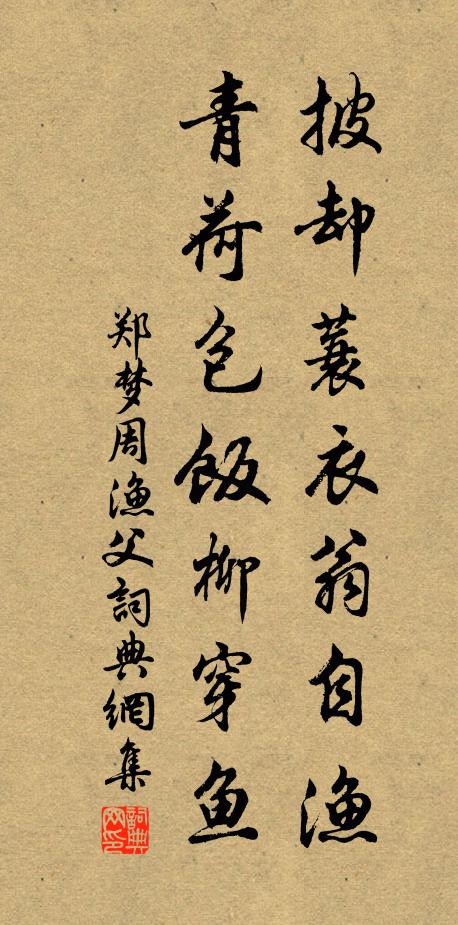 披却蓑衣翁自漁
青荷包飯柳穿鱼
郑梦周渔父詞典網集
詞典网印